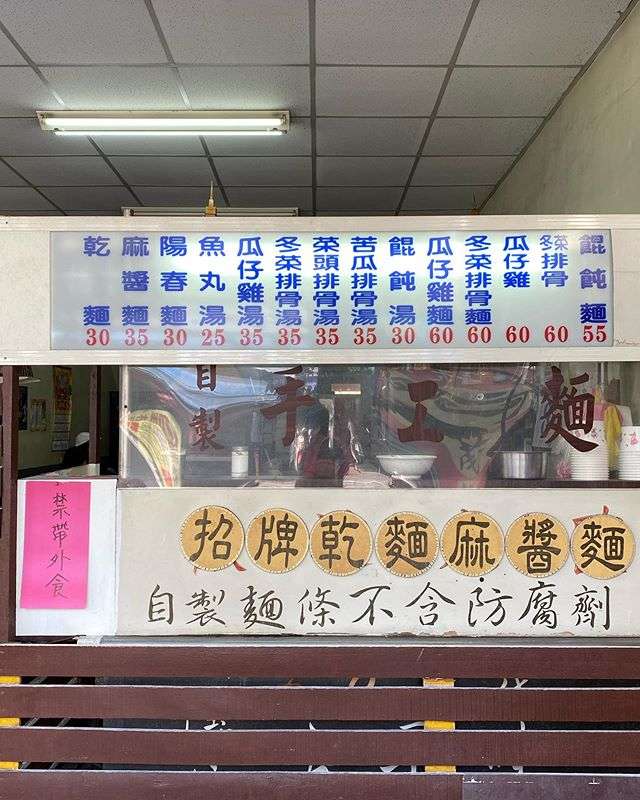 乾麵 30
麻醬麵 35
陽春麵 30
魚丸湯 25
瓜仔雞湯 35
冬菜排骨湯 35
菜頭排骨湯 35
苦瓜排骨湯 35
餛飩湯 30
瓜仔雞麵 60
冬菜排骨麵 60
瓜仔雞 60
冬菜排骨 60
餛飩麵 55
自製
手工麵
招牌乾麵麻醬麵
自製麵條不含防腐劑
禁帶外食